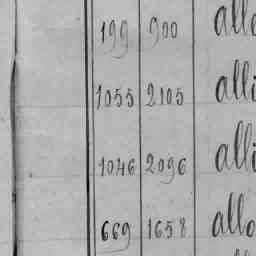 199 900 allo
1055 2105 alli
1046 2096 alli
669 1658 allo